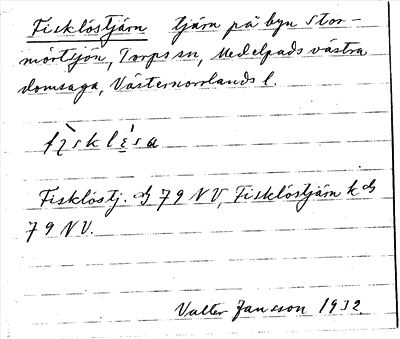 Fisklöstjärn tjärn på byn Stor-
mörtsjön, Torps sn, Medelpads västra
domsaga, Västernorrlands l.
fı̀skl
Fisklöstj. 79 NV, Fisklöstjärn k
79 NV.
Valter Jansson 1932.